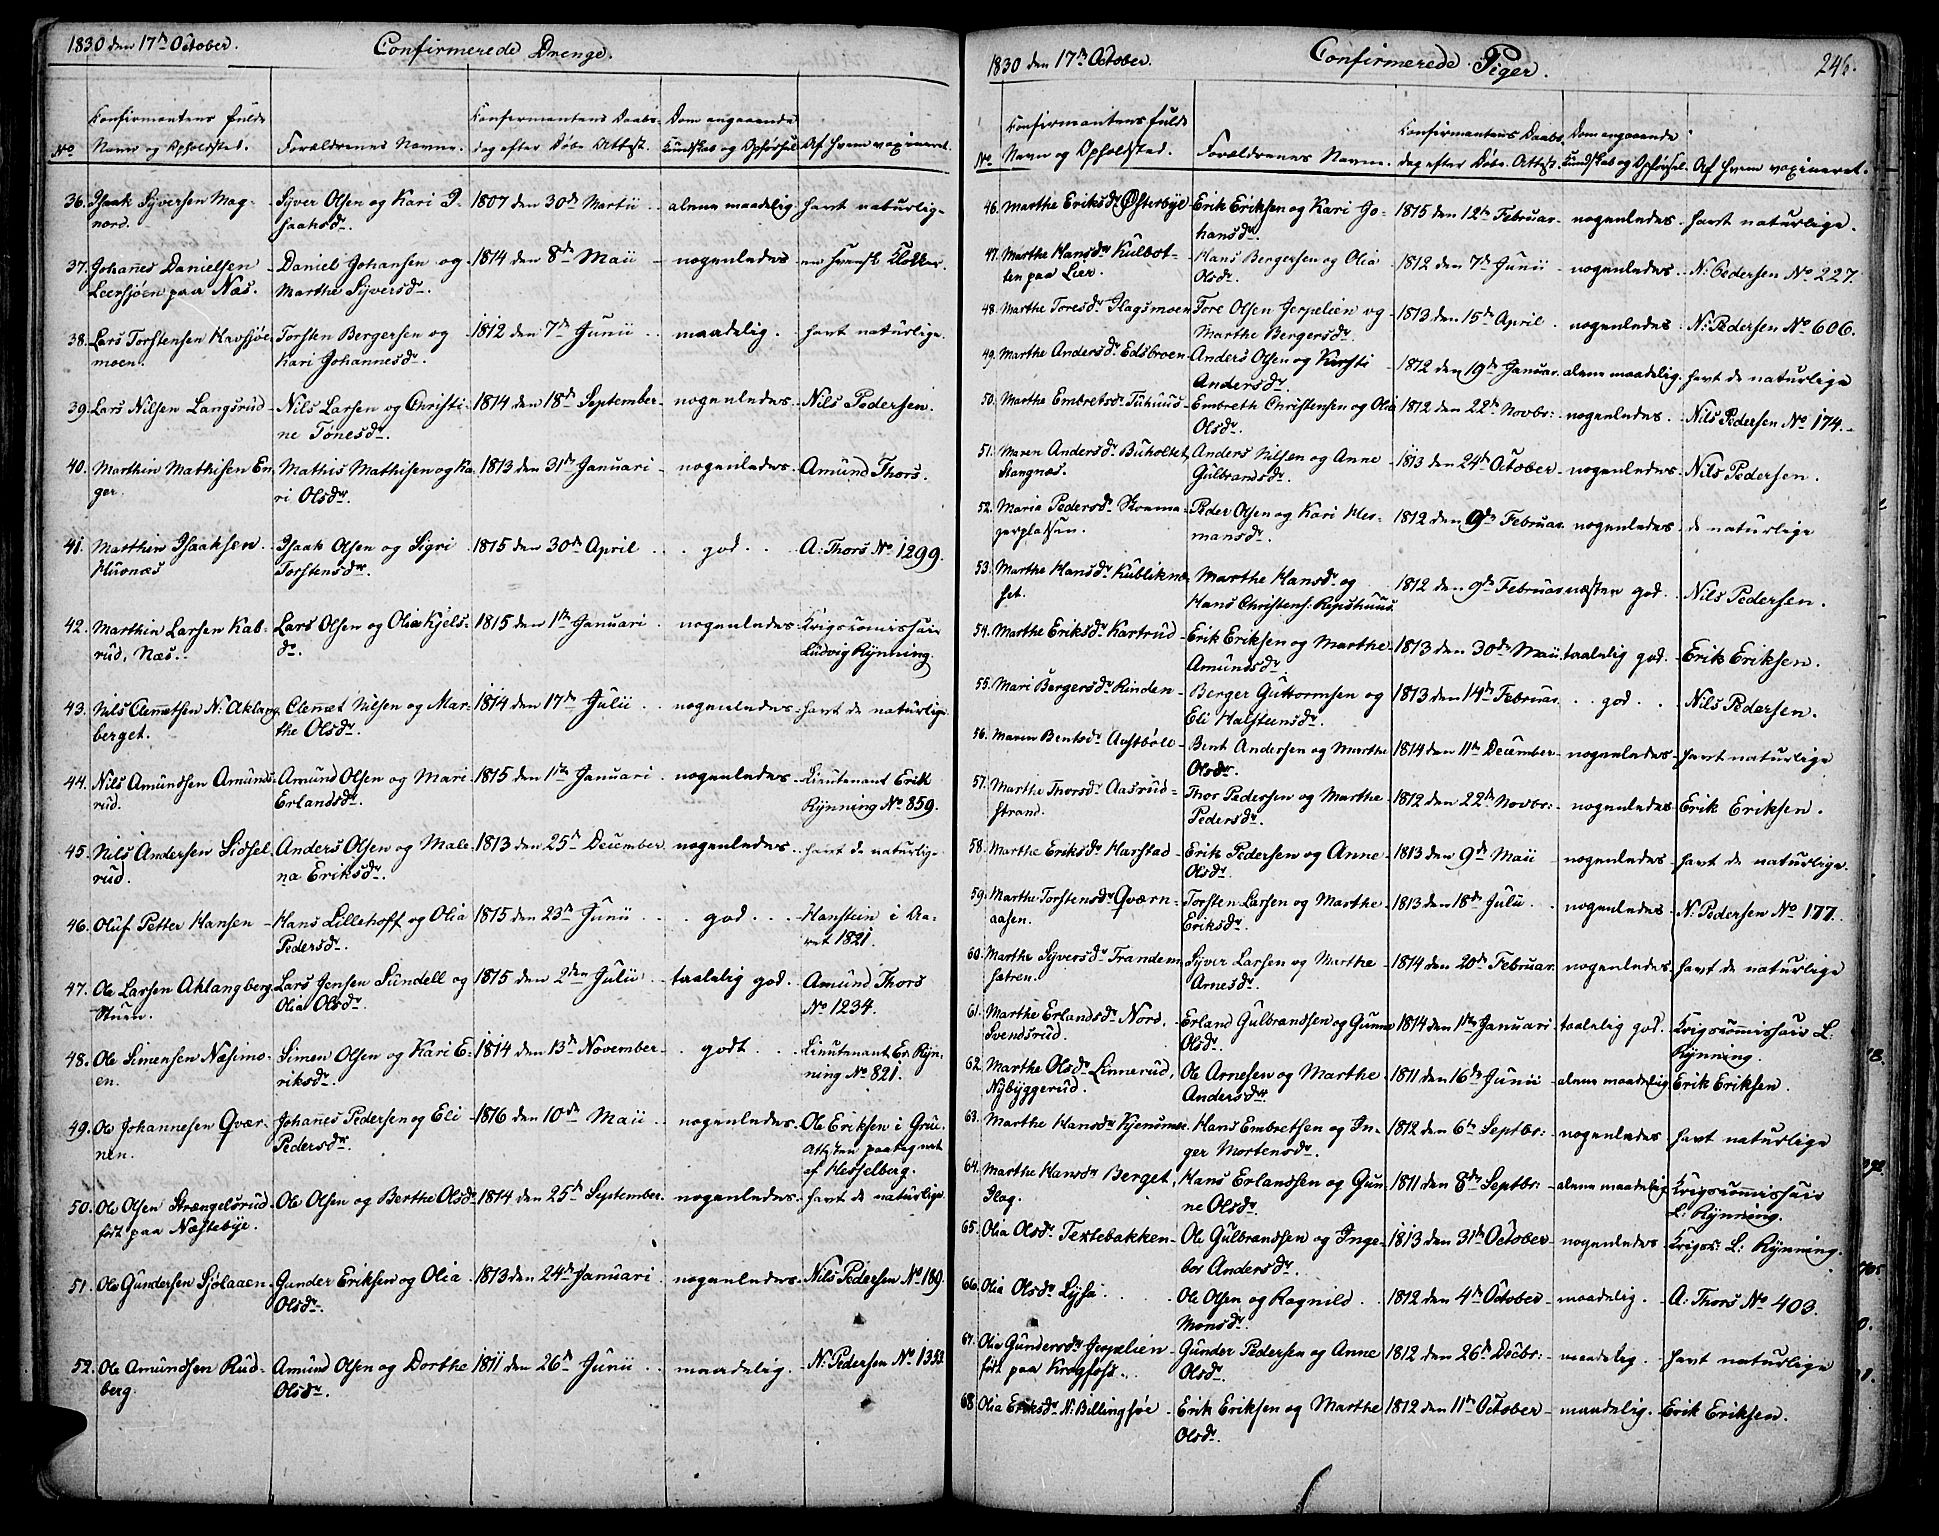 1830 den 17de October.
Confirmerede Drenge.
No
Konfirmantens fulde
Navn og Opholdsted.
Forældrenes Navne.
Konfirmantens Daabs-
dag efter Døbe Attest.
Dom angaaende
Kundskab og Opførsel
Af hvem vaxineret.
36. Isaak Syversen Mag-
nord.
Syver Olsen og Kari I-
saaksdr.
1807 den 30de Martii
alene maadelig.
havt naturlig-
37. Johanes Danielsen
Leersjøen paa Næs.
Daniel Johansen og
Marthe Syversdr.
1814 den 8de Maii
nogenledes
en svensk Klokker.
38. Lars Torstensen Kavsjøe-
moen.
Torsten Bergersen og
Kari Johannesdr.
1812 den 7de Junii
maadelig.
havt naturlige.
39. Lars Nilsen Langsrud
Nils Larsen og Christi-
ne Tønesdr.
1814 den 18de September
nogenledes.
Nils Pedersen.
40. Marthin Mathisen En-
ger.
Mathis Mathisen og Ka-
ri Olsdr.
1813 den 31te Januari
nogenledes.
Amund Thors.
41. Marthin Isaaksen
Huvnæs
Isaak Olsen og Sigri
Torstensdr.
1815 den 30de April
god.
A: Thors No 1299.
42. Marthin Larsen Kab-
rud, Næs.
Lars Olsen og Olia Kjels-
dr.
1815 den 1te Januari
nogenledes
Krigscomissair
Ludvig Rynning.
43. Nils Clemetsen N: Aklang-
berget.
Clemet Nilsen og Mar-
the Olsdr.
1814 den 17de Julii
nogenledes
havt de naturlige
44. Nils Amundsen Amunds-
rud.
Amund Olsen og Mari
Erlandsdr.
1815 den 1te Januari
nogenledes
Lieutenant Erik
Rynning No 859.
45. Nils Andersen Sidsel-
rud.
Anders Olsen og Male-
na Eriksdr.
1813 den 25de December
nogenledes
havt de naturlige
46. Oluf Petter Hansen
Hans Lillehoff og Olia
Pedersdr.
1815 den 23de Junii
god.
Hanstein i Aa-
ret 1821.
47. Ole Larsen Aklangberg
Stuen.
Lars Jensen Sundell og
Olia Olsdr.
1815 den 2den Julii
taalelig god.
Amund Thors
No 1234.
48. Ole Simensen Næsimo-
en.
Simen Olsen og Kari E-
riksdr.
1814 den 13de November
godt
Lieutenant Er: Ryn-
ning No 821.
49. Ole Johannesen Qvær-
nen.
Johanes Pedersen og Eli
Pedersdr.
1816 den 10de Maii
nogenledes.
Ole Eriksen i Grue
Attesten paategnet
af Hesselberg.
50. Ole Olsen Strængelsrud
født paa Næstebye.
Ole Olsen og Berthe Olsdr
1814 den 25de September
nogenledes.
havt de naturlige
51. Ole Gundersen Sjølaaen
Gunder Eriksen og Olia
Olsdr.
1813 den 24de Januari
nogenledes.
Nils Pedersen No 189.
52. Ole Amundsen Rud-
berg.
Amund Olsen og Dorthe
Olsdr.
1811 den 26de Junii
maadelig.
N: Pedersen No 1353
1830 den 17de October.
Confirmerede Piger.
246.
No
Konfirmantens fulde
Navn og Opholdsted.
Forældrenes Navne
Konfirmantens Daabs-
dag efter Døbe Attest.
Dom angaaende
Kundskab og Opførsel.
Af hvem vaxineret.
46. Marthe Eriksdr Østerbye
Erik Eriksen og Kari Jo-
hansdr.
1815 den 12te Februar
nogenledes
havt naturlige.
47. Marthe Hansdr Kulbot-
ten paa Leer.
Hans Bergersen og Olia
Olsdr.
1812 den 7de Junii
nogenledes
N: Pedersen No 227.
48. Marthe Toresdr Ilagsmoen
Tore Olsen Jerpelien og
Marthe Bergersdr.
1813 den 15de April
nogenledes
N: Pedersen No 606.
49. Marthe Andersdr Edsbroen
Anders Olsen og Kirsti
Andersdr.
1812 den 19de Januar
alene maadelig.
havt de naturlige
50. Marthe Embretsdr
Embreth Christensen og Olia
Olsdr.
1812 den 22de Novbr:
nogenledes.
Nils Pedersen No 174.
51. Maren Andersdr Buholtet,
Stangnæs.
Anders Nilsen og Anne
Gulbrandsdr.
1813 den 24de October
nogenledes
Nils Pedersen.
52. Maria Pedersdr Skoma-
gerpladsen.
Peder Olsen og Kari Hes-
mansdr.
1812 den 9de Februar
nogenledes
de naturlige
53. Marthe Hansdr
Marthe Hansdr og
Hans Christens:
1812 den 9de Februar
næsten god.
Nils Pedersen.
54. Marthe Eriksdr Kartrud
Erik Eriksen og Marthe
Amundsdr.
1813 den 30de Maii
taalelig god.
Erik Eriksen.
55. Mari Bergersdr Rinden
Berger Guttormsen og
Eli Halsteensdr.
1813 den 14de Februar
god.
Nils Pedersen.
56. Maren Bentsdr Austbøle
Bent Andersen og Marthe
Olsdr.
1814 den 11te December
nogenledes
havt naturlige
57. Marthe Thorsdr Aasrud-
strand.
Thor Pedersen og Marthe
Pedersdr.
1812 den 22de Novbr:
nogenledes
Erik Eriksen.
58. Marthe Eriksdr Harstad
Erik Pedersen og Anne
Olsdr.
1813 den 9de Maii
nogenledes
havt de naturlige.
59. Marthe Torstensdr Qværn-
aasen.
Torsten Larsen og Marthe
Eriksdr.
1813 den 18de Julii
nogenledes
N: Pedersen No 177.
60. Marthe Syversdr Trandem-
sætren.
Syver Larsen og Marthe
Arnesdr.
1814 den 20de Februar
nogenledes
havt de naturlige
61. Marthe Erlandsdr Nord,
Svendsrud.
Erland Gulbrandsen og Gunne
Olsdr.
1814 den 1te Januari
taalelig god.
Krigscomissair L:
Rynning.
62. Marthe Olsdr Linnerud,
Nybyggerud.
Ole Arnesen og Marthe
Andersdr
1811 den 16de Junii
alene maadelig
Erik Eriksen.
63. Marthe Hansdr
Hans Embretsen og In-
ger Mortensdr.
1812 den 6te Septbr:
nogenledes
havt naturlige
64. Marthe Hansdr Berget,
Ilag.
Hans Erlandsen og Gun-
ne Olsdr.
1811 den 8de Septbr:
alene maadelig
Krigscomissair
L: Rynning.
65. Olia Olsdr Textebakken
Ole Gulbrandsen og Inge-
bor Andersdr.
1813 den 31te October
nogenledes
Krigsc: L: Rynning.
66. Olia Olsdr Lysa
Ole Olsen og Ragnild
Monsdr.
1812 den 4de October
maadelig.
A: Thors No 403.
67. Olia Gundersdr Jerpelien
født paa Krogfoss.
Gunder Pedersen og Anne
Olsdr.
1812 den 26de Decbr:
maadelig.
havt naturlige
68 Olia Eriksdr N: Billingsøe
Erik Eriksen og Marthe
Olsdr.
1812 den 11te October
maadelig.
Erik Eriksen.